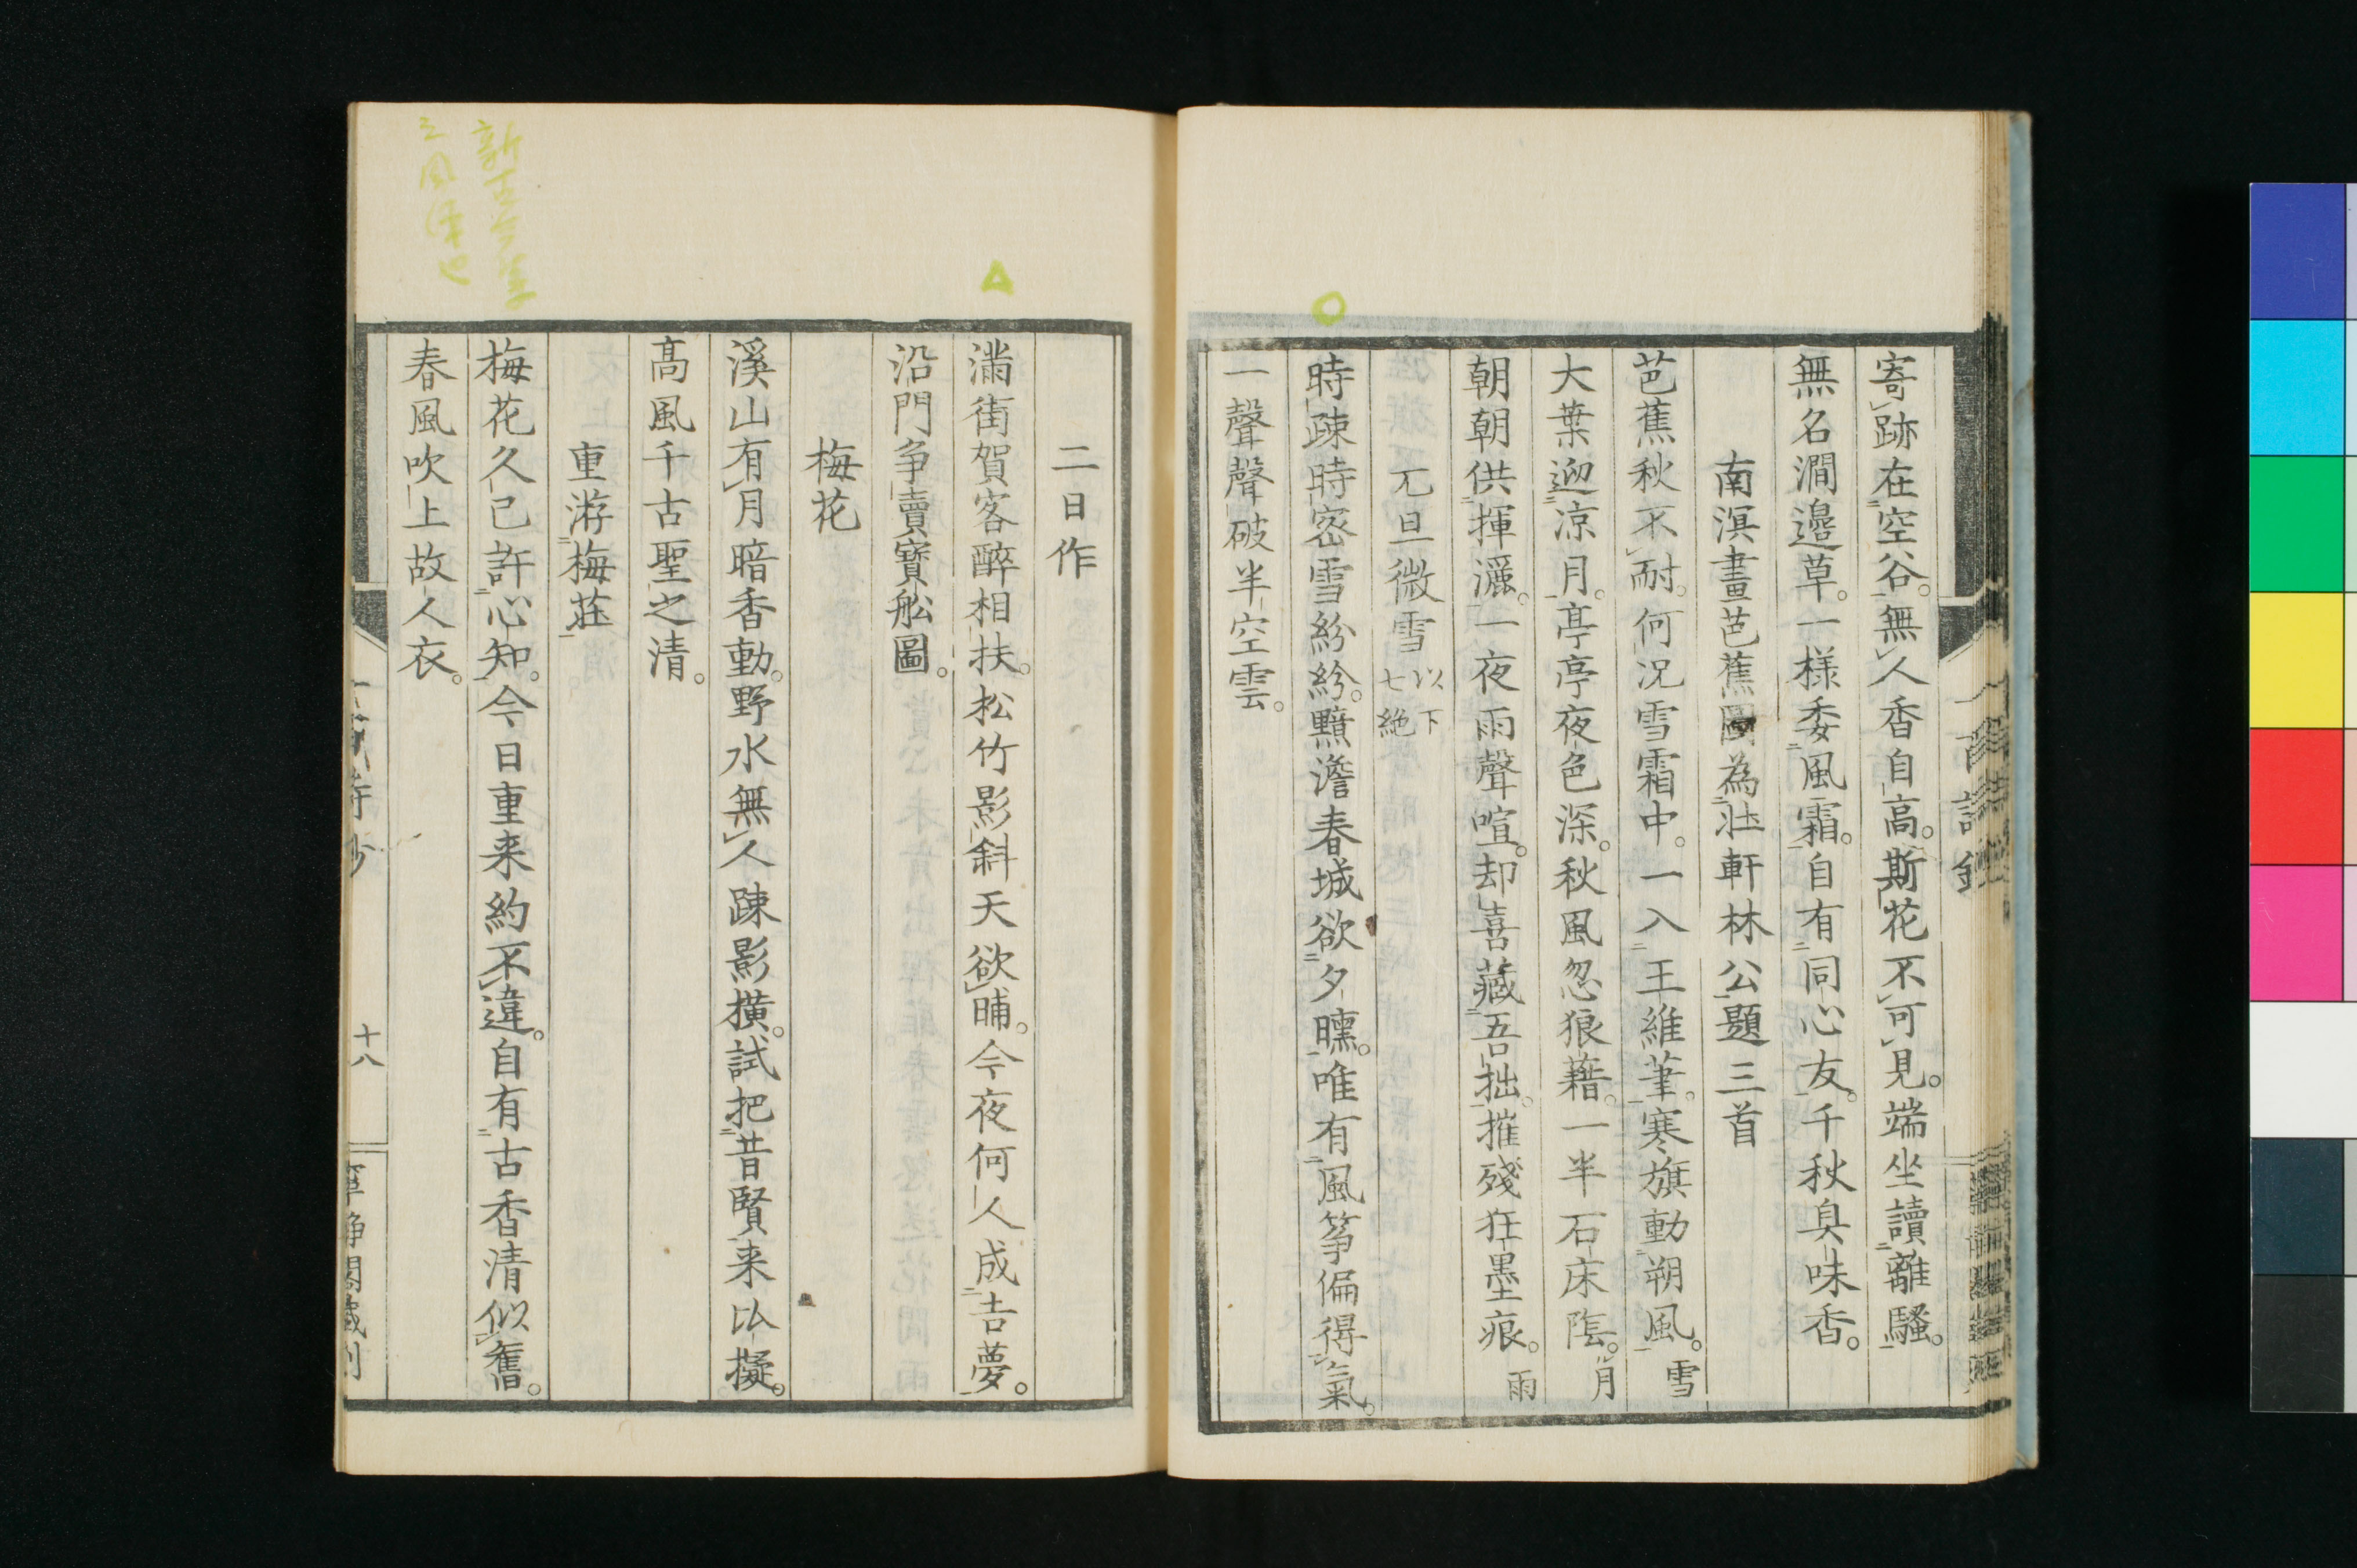 寄跡在空谷。無人香自高。斯花不可見。端坐讀離騷。
無名澗邊草。一樣委風霜。自有同心友。千秋臭味香。
南溟畫芭蕉圖為壯軒林公題三首
芭蕉秋不耐。何況雪霜中。一入王維筆。寒旗動朔風。雪
大葉迎凉月。亭亭夜色深。秋風忽狼藉。一半石床陰。月
朝朝供揮灑。一夜雨聲喧。却喜藏吾拙。摧殘狂墨痕。雨
元旦微雪以下七絶
時疎時密雪紛紛。黯澹春城欲夕曛。唯有風筝偏得氣。
一聲聲破半空雲。
二日作
滿街賀客醉相扶。松竹影斜天欲晡。今夜何人成吉夢。
沿門争賣寳舩圖。
梅花
溪山有月暗香動。野水無人疎影横。試把昔賢来比擬。
高風千古聖之清。
重游梅莊
梅花久已許心知。今日重来約不違。自有古香清似舊。
春風吹上故人衣。
十八